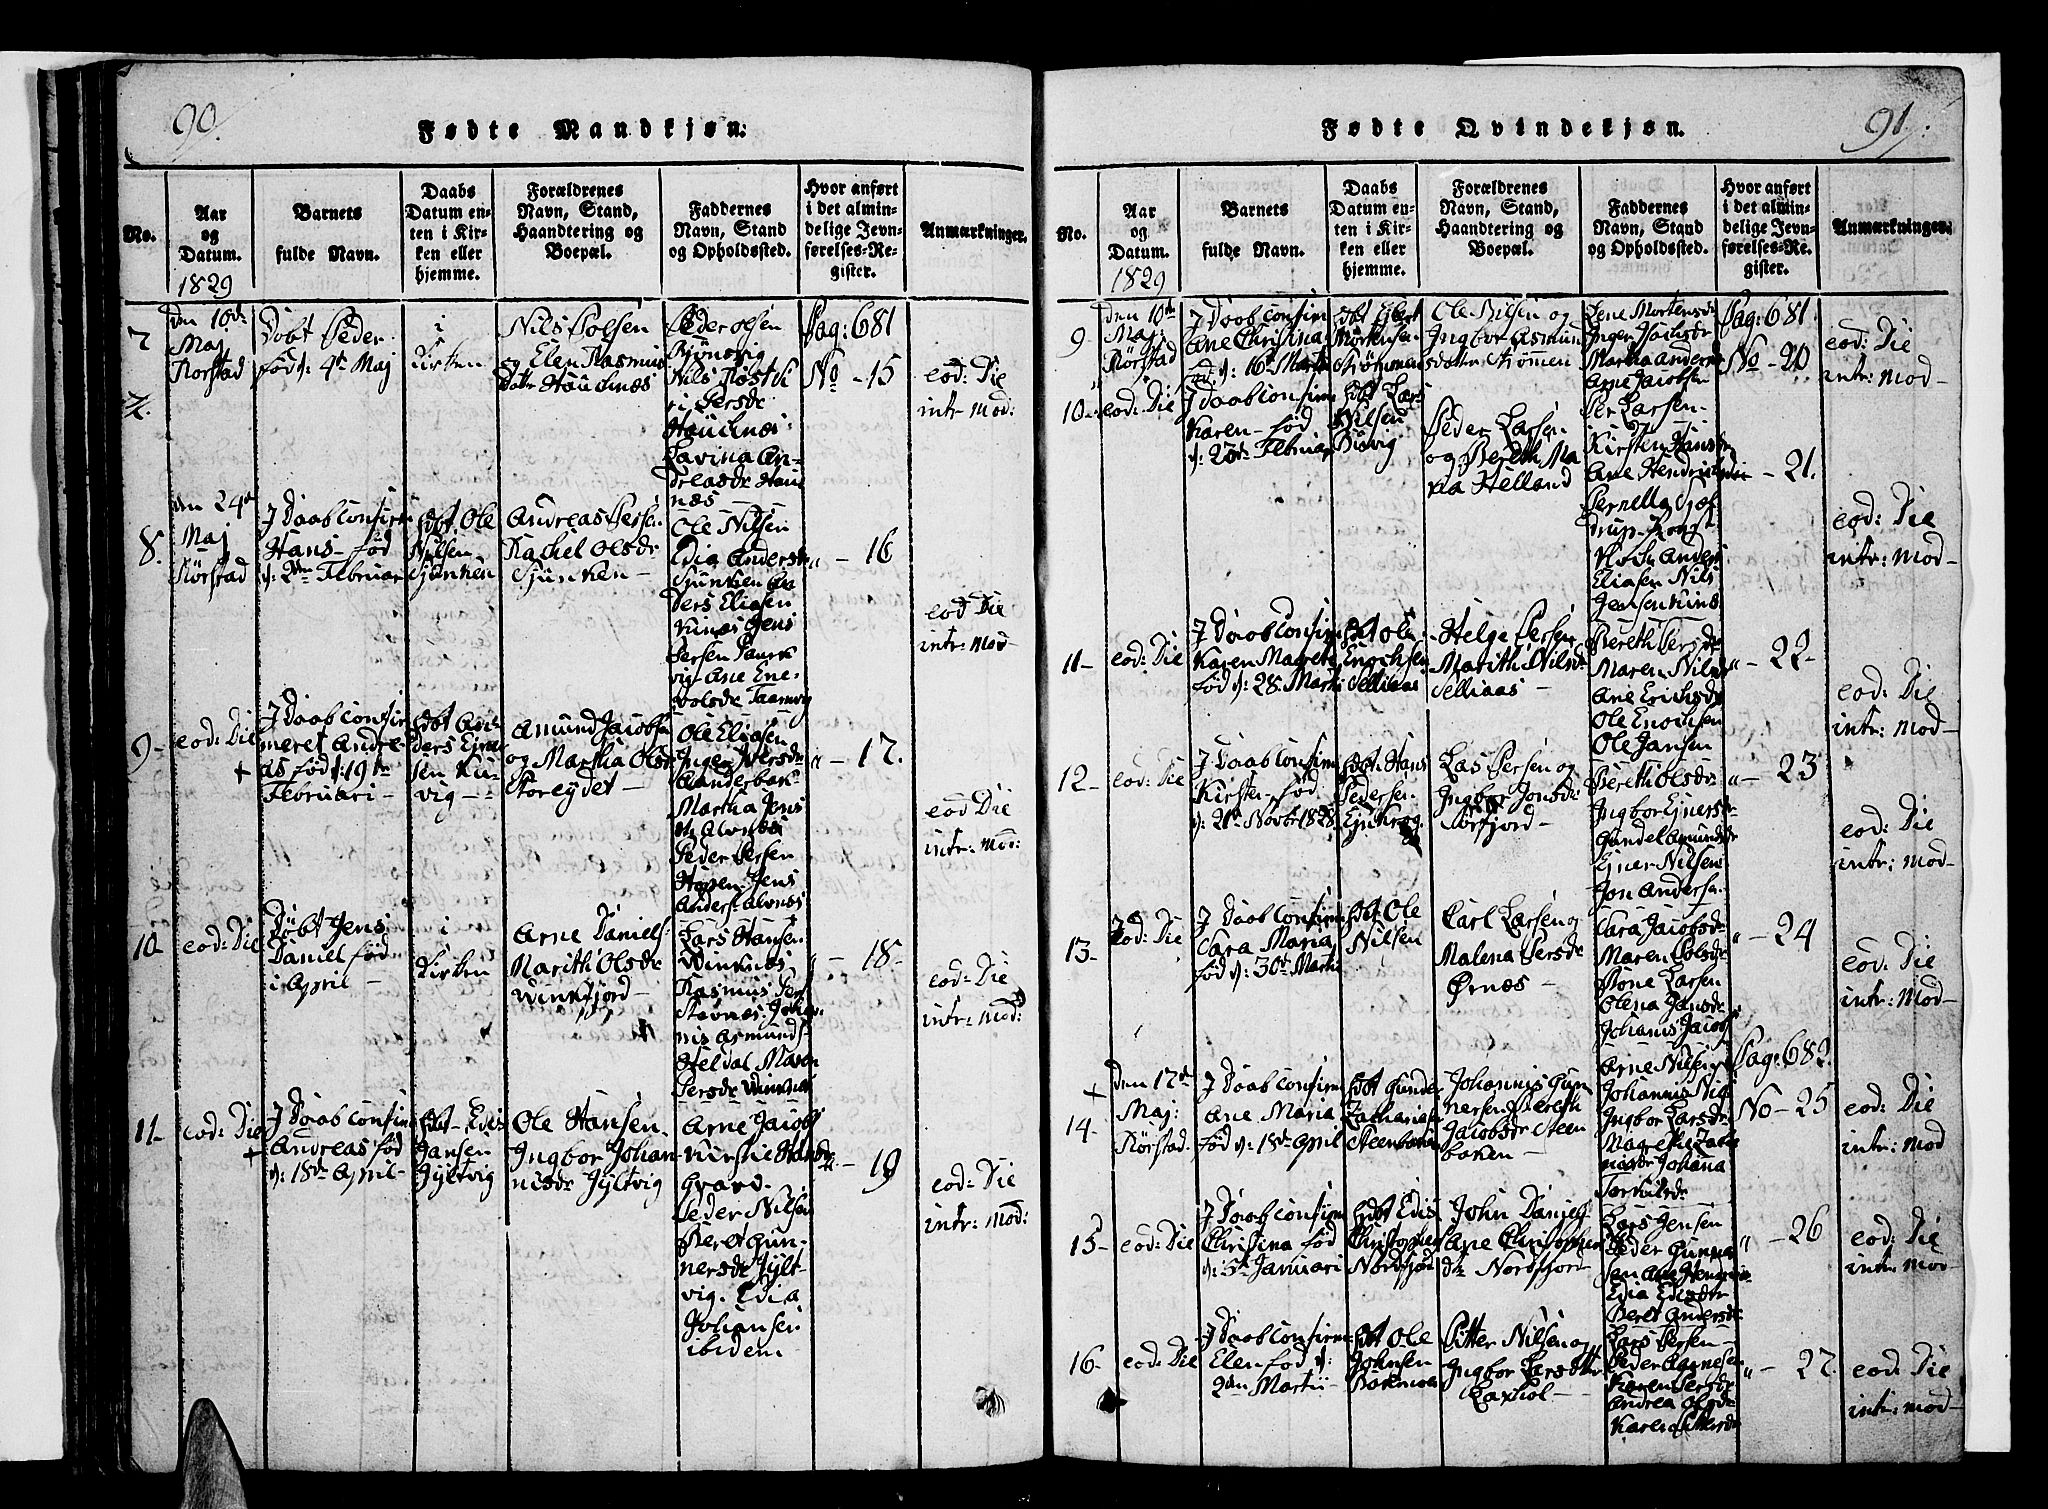 90.
Fødte Mandkjøn.
No.
Aar
og
Datum.
1829
Barnets
fulde Navn.
Daabs
Datum en-
ten i Kir-
ken eller
hjemme.
Forældrenes
Navn, Stand,
Haandtering og
Boepæl.
Faddernes
Navn, Stand
og Opholdssted.
Hvor anført
i det almin-
delige Jevn-
førelses-Re-
gister.
Anmærkninger.
7
den 10de
Maj
Rørstad
Døbt Peder
fød d: 4de Maj
i
Kirken
Nils Polsen
og Elen Rasmus
Datter Haudnæs
Peder Olsen
Nils
Persde
Haudnæs
Lavina An-
dreasdr Haud
næs
Pag: 681
No - 15
eod: Die
intr mod:
8.
den 24de
Maj
Rørstad
J Daab Confirm
Hans - fød
d: 2den Februar
døbt Ole
Nilsen
Sjunken
Andreas Persen
Rachel Olsdr
Sjunken -
Ole Nilsen
Edia Andersdr
Sjunken An
ders Eliasen
Kines Jens
Persen
vig Ane Ene-
volsdr
" - 16
eod Die
intr: mod -
9 -
eod: Die
+
J Daab Confir
meret Andre-
as fød d: 19de
Februari -
døbt An
ders Ejner
sen
vig -
Amund Jacobsen
og Martha Olsdr
Storeydet -
Ole Eliasen
Inger Persdr
Aanderbak
Martha Jens
dr Alvnæs
Peder Persen
Hopen Jens
Anders: Alvnæs
" - 17.
eod Die
intr: mod:
10
eod: Die
Døbt Jens
Daniel fød
i April -
i
Kirken
Arne Daniels:
Marith Olsdr
Vinkfjord -
Lars Hansen
Vinknæs
Rasmus Pers
Stevnæs Johan-
nis Asmunds
Heldal Maren
Persdr Vinknæs
- 18 -
eod: Die
intr: mod:
11 -
eod: Die
+
J Daab Confirm
Andreas fød
d: 18de April -
døbt Edis
Jansen
Jyltvig
Ole Hansen
Ingbor Johan
nisdr Jyltvig
Arne Jacobs
Kirstie Hansdr
Peder Nilsen
Beret Gun-
nersdr Jylt-
vig. Edia
Johansen
ibidem
- 19
eod: Die
intr: mod:
91.
Fødte Qvindekjøn.
No.
Aar
og
Datum.
1829
Barnets
fulde Navn.
Daabs
Datum en-
ten i Kir-
ken eller
hjemme.
Forældrenes
Navn, Stand,
Haandtering og
Boepæl.
Faddernes
Navn, Stand
og Opholdssted.
Hvor anført
i det almin-
delige Jevn-
førelses-Re-
gister.
Anmærkninger.
9
den 10de
Maj:
Rørstad
J Daab Confirm
Ane Christina
fød d: 16de Martii
døbt Ejlert
Mortensen
Strømmen
Ole Nilsen og
Ingbor Asmun
sdatter Strømmen
Lene Mortensdr
Inger
Martha Andersdr
Arne Jacobsen
Pag: 681
No - 20
eod: Die
intr: mod -
10.
eod: Die
J Daab Confirm
Karen - fød
d: 23de Februar
døbt Lars
Nilsen
Peder Larsen
og Bereth Ma
ria Helland
Per Larsen
Kirsten Hansdr
Ane Hendrichsdr
Pernella
Anders
Eliasen Nils
Jensen Kines
- 21.
eod: Die
intr: mod -
11 -
eod: Die
J Daab Confirm
Karen Magrete
fød d: 28. Martii
døbt Ole
Enochsen
Selliaas
Helge Persen
Marith Nilsdr
Selliaas -
Bereth Persdr
Maren Nilsdr
Ane Erichsdr
Ole Enochsen
Ole Jansen
" - 22 -
eod: Die
intr: mod -
12 -
eod: Die
J Daab Confirm
Kirsten - fød
d: 21de Novbr 1828
døbt Hans
Pedersen
Las Persen og
Ingbor Jonsdr
Sørfjord -
Bereth Olsdr
Ingbor Ejnersdr
Gundel Amundsdr
Ejner Nilsen
Jon Andersen
" - 23
eod: Die
intr: mod -
13 -
eod: Die
J Daab Confirm
Cara Maria
fød d: 30de Martii
døbt Ole
Nilsen
Carl Larsen og
Malena Persdr
Ørnæs -
Cara Jacobsdr
Maren Polsdr
Tone Larsen
Olena Jansdr
Johanis Jacobs
" - 24
eod: Die
intr: mod -
+
14 -
den 17de
Maj:
Rørstad.
J Daab Confirm
Ane Maria
fød d: 18de April
døbt Gunder
Zacharias
Steenbaken
Johannis Gun
nersen Bereth
Jacobsdr Steen
baken -
Arne Nilsen
Johannis Nils
Ingbor Larsdr
Magrethe Zacha
riasdr Johana
Torkilsdr
Pag: 682.
No - 25
eod: Die
intr: mod
15 -
eod: Die
J Daab Confirm
Christina fød
d: 5te Januari
døbt Edis
Christophers
Nordfjord
John Daniels
Ane Christophers
dr Nordfjord
Lars Jensen
Peder Gunna
sen Ane Hendrichs
Edia Edisdr
Beret Andersdr
" - 26
eod: Die
intr: mod -
16 -
eod: Die
J Daab Confirm
Elen fød d:
2den Martii -
døbt Ole
Johnsen
Pitter Nilsen og
Ingbor Larsdtr
Laxhol -
Lars Persen -
Peder Agnesen
Karen Persdr
Andrea Olsdr
Karen Pittersdr
" - 27.
eod: Die
intr: mod -